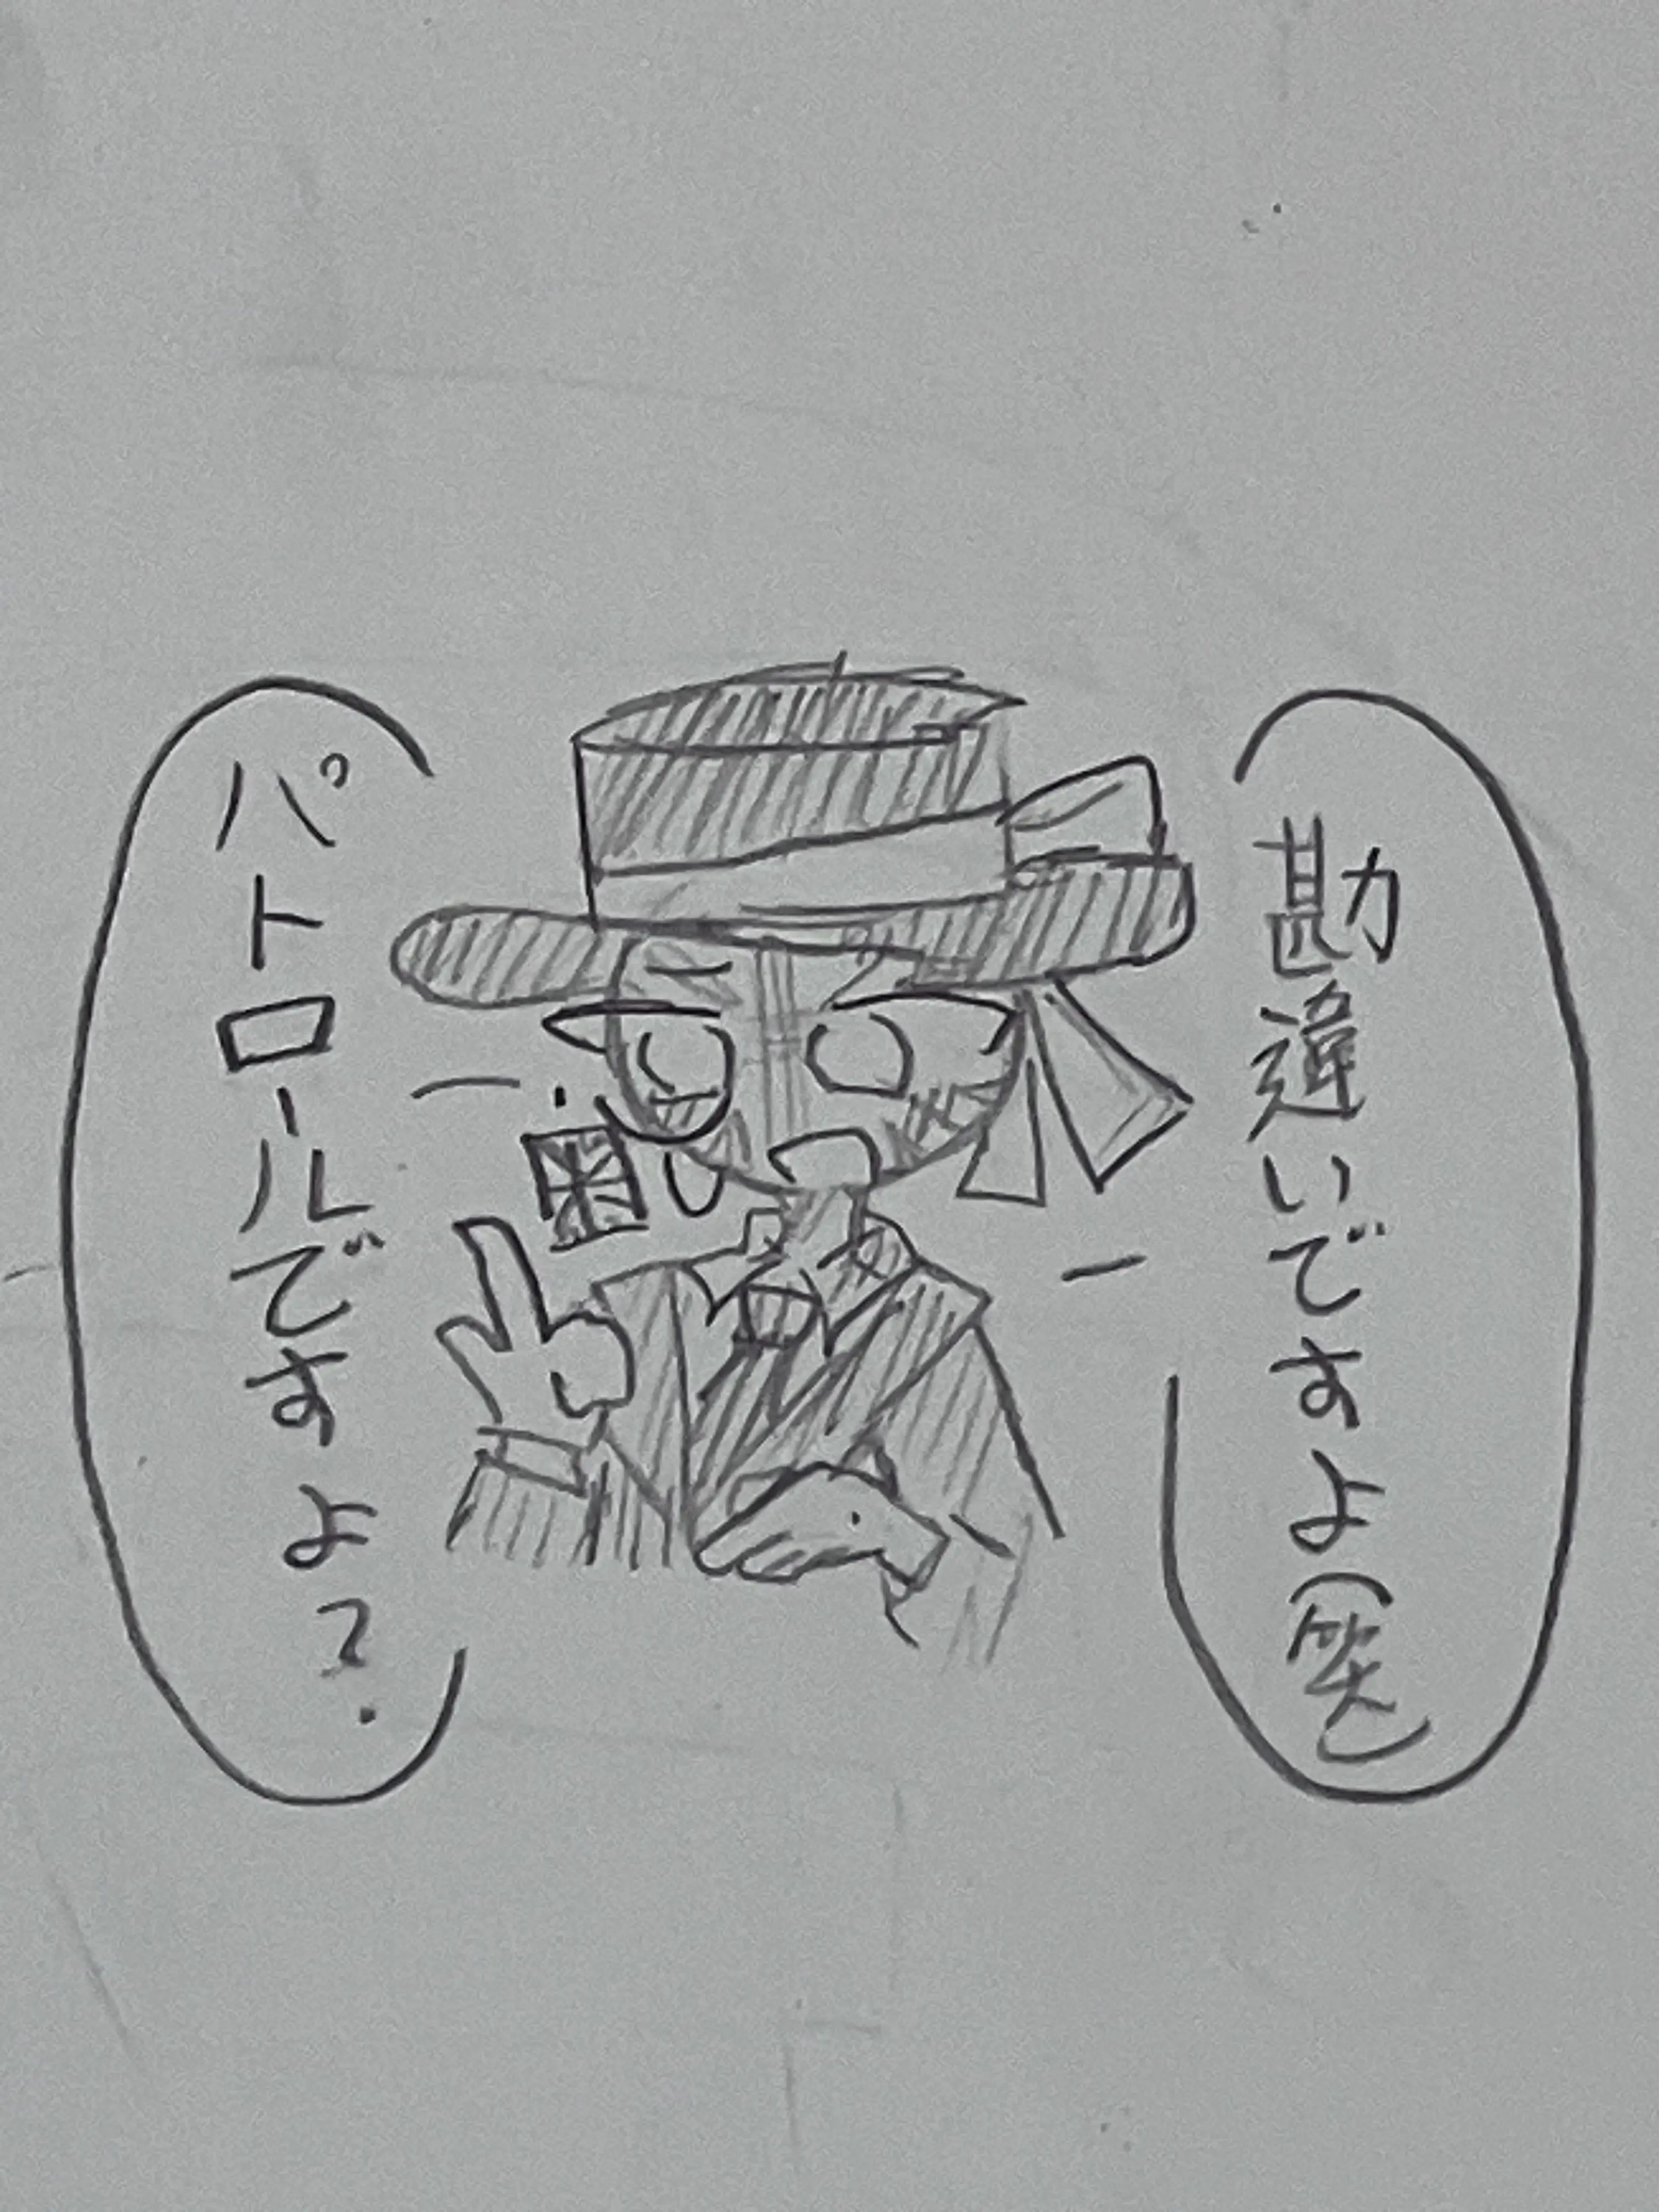 勘違いですよ(笑)
パトロールですよ?